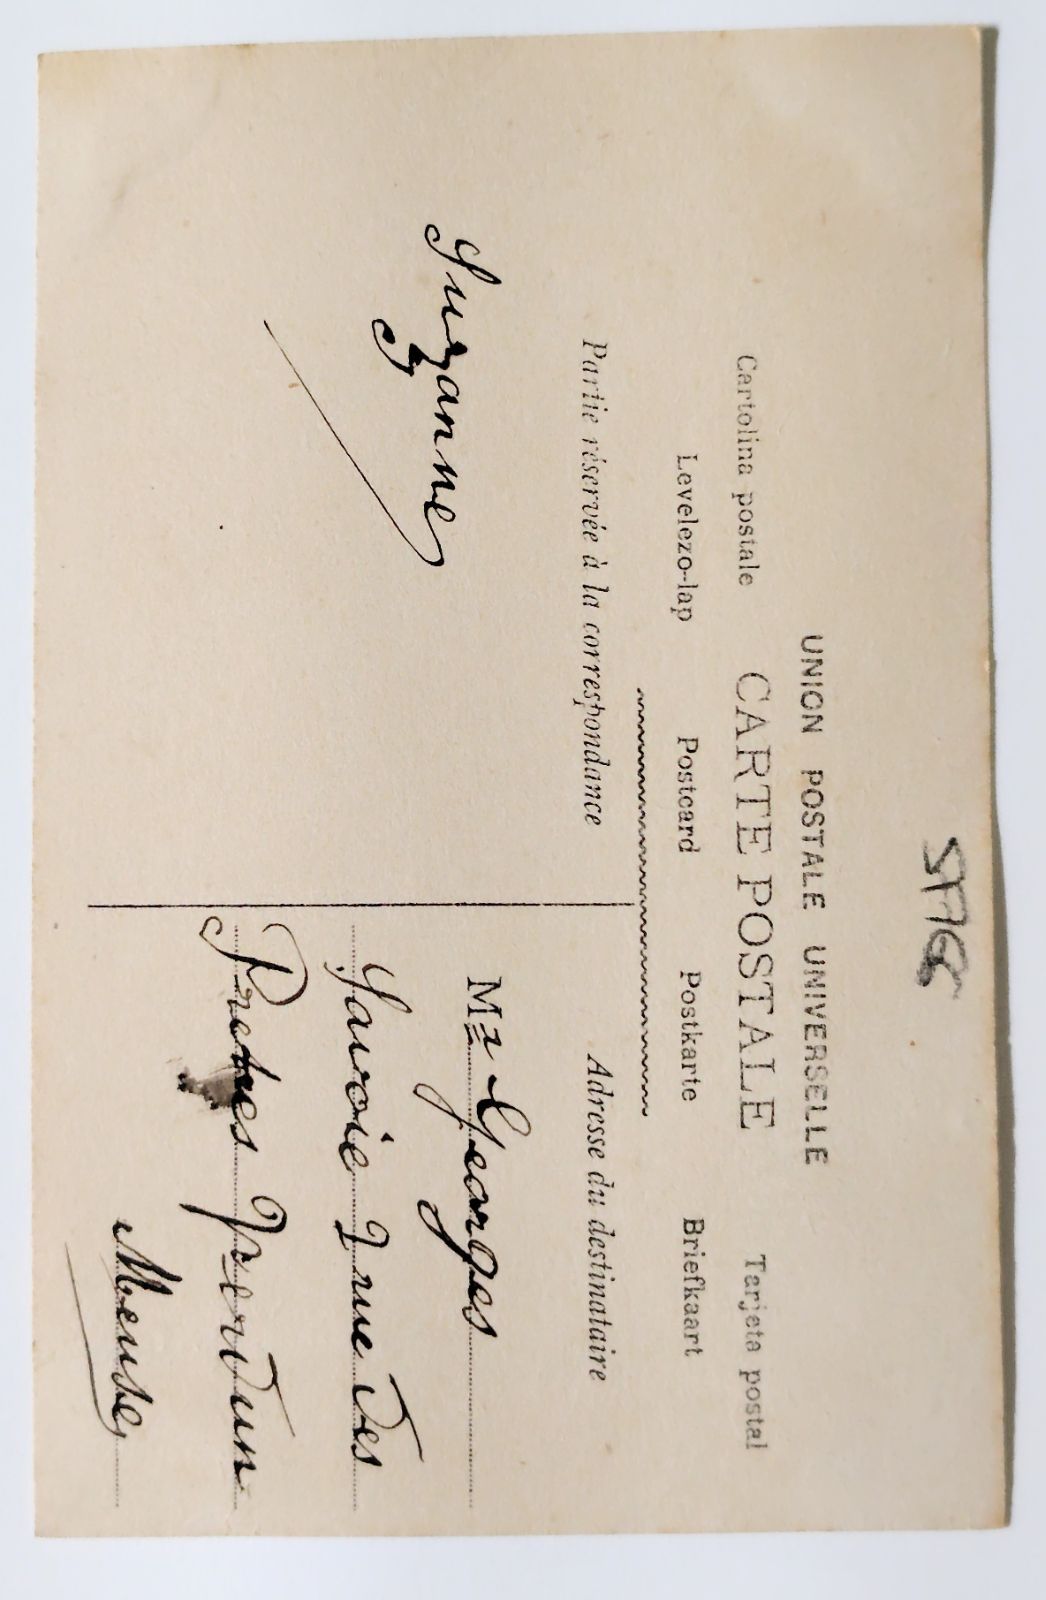 UNION POSTALE UNIVERSELLE
Cartolina postale CARTE POSTALE Tarjeta postal
Levelezo-lap Postcard Postkarte Briefkaart
Partie réservée à la correspondance
Suzanne
Adresse du destinataire
Mr Georges
Savoie 2 rue des
Pretres Verdun
Meuse